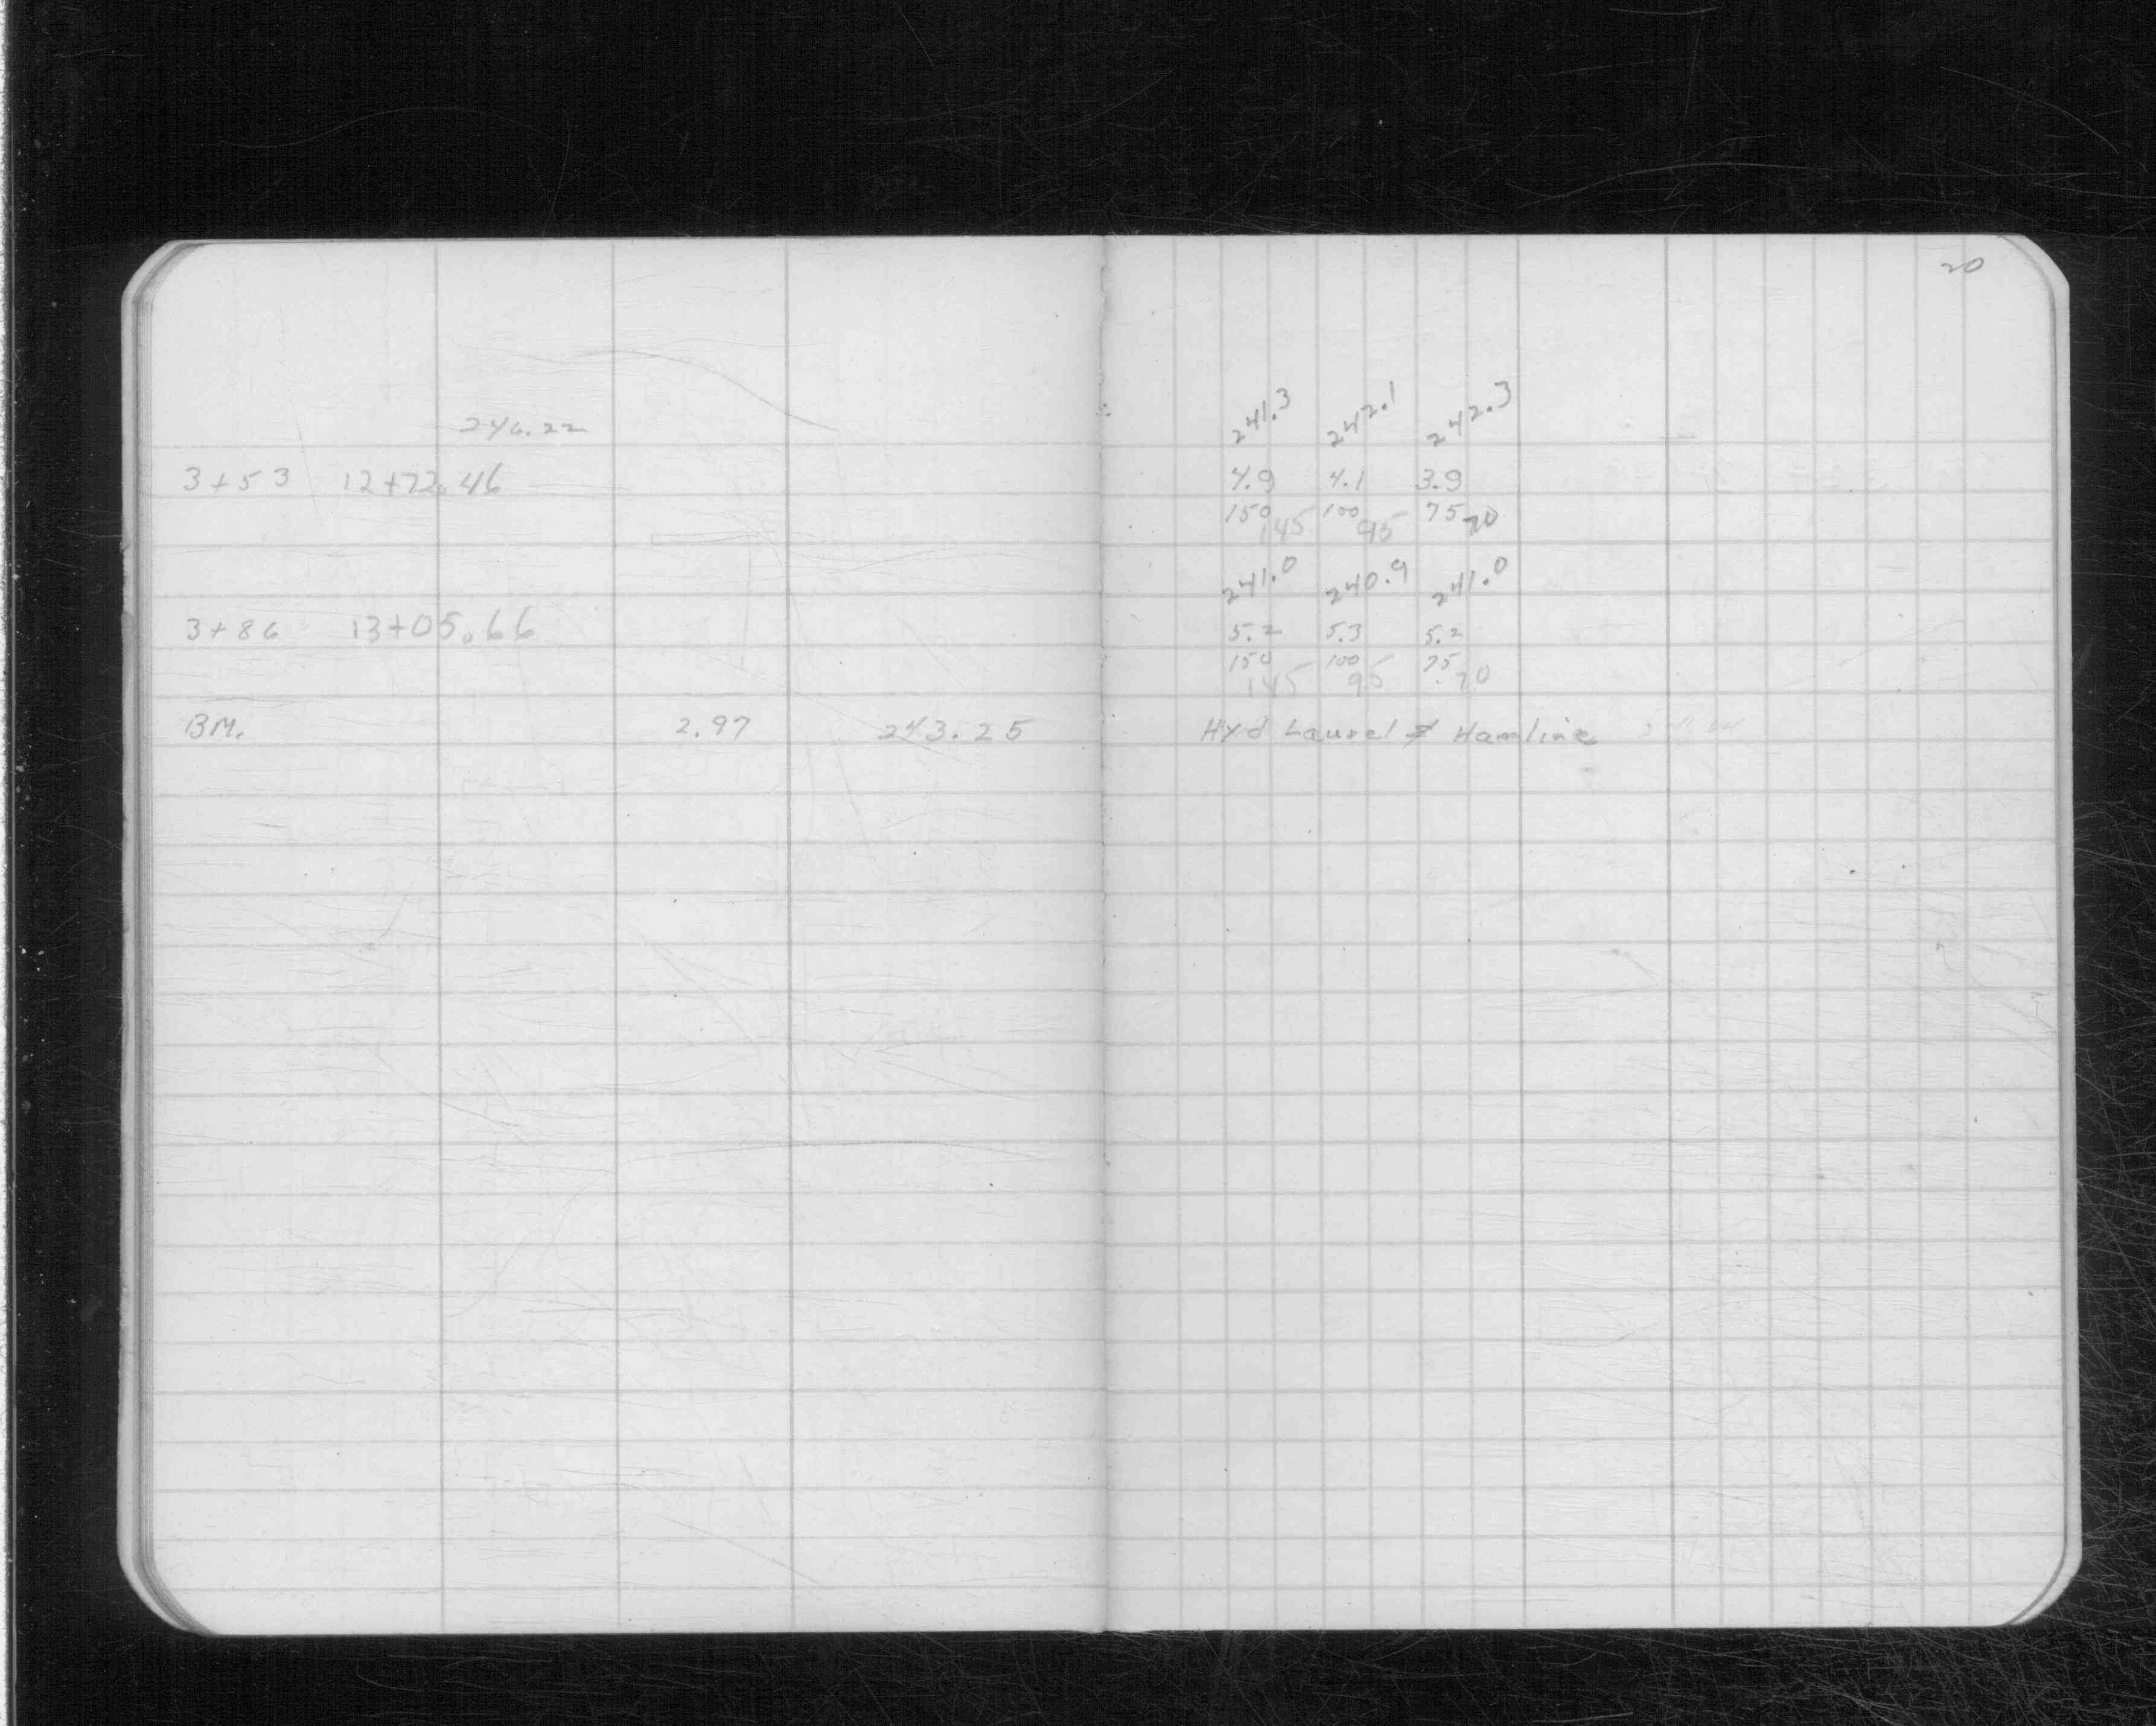 20
241.3 242.1 242.3
246.22
3+53 12+72.46 4.9 4.1 3.9
150 100 75
145 95 70
241.0 240.9 241.0
3+86 13+05.66 5.2 5.3 5.2
150 100 75
145 95 70
BM. 2.97 243.25 Hyd Laurel & Hamline